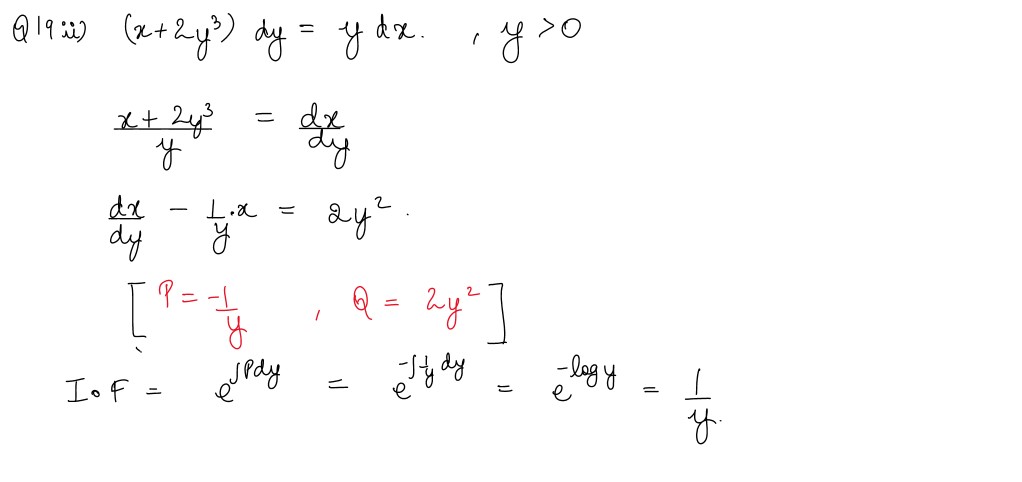 Q19 ii) (x+2y³) dy = y dx. , y > 0
x + 2y³ / y = dx/dy
dx/dy - 1/y . x = 2y² .
[ P = -1/y , Q = 2y² ]
I.F = e^∫Pdy = e^-∫1/y dy = e^-log y = 1/y.